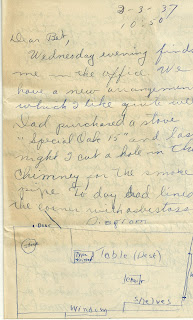 3-3-37
10:50
Dear Bet,
Wednesday evening finds
me in the office. We
have a new arrangement
which I like quite well
Dad purchased a stove
"Special Oak 15" and last
night I cut a hole in the
chimney for the smoke
pipe. To day Dad lined
the corner with asbestos
Diagram
Door
Table (Desk)
Shelves
Window